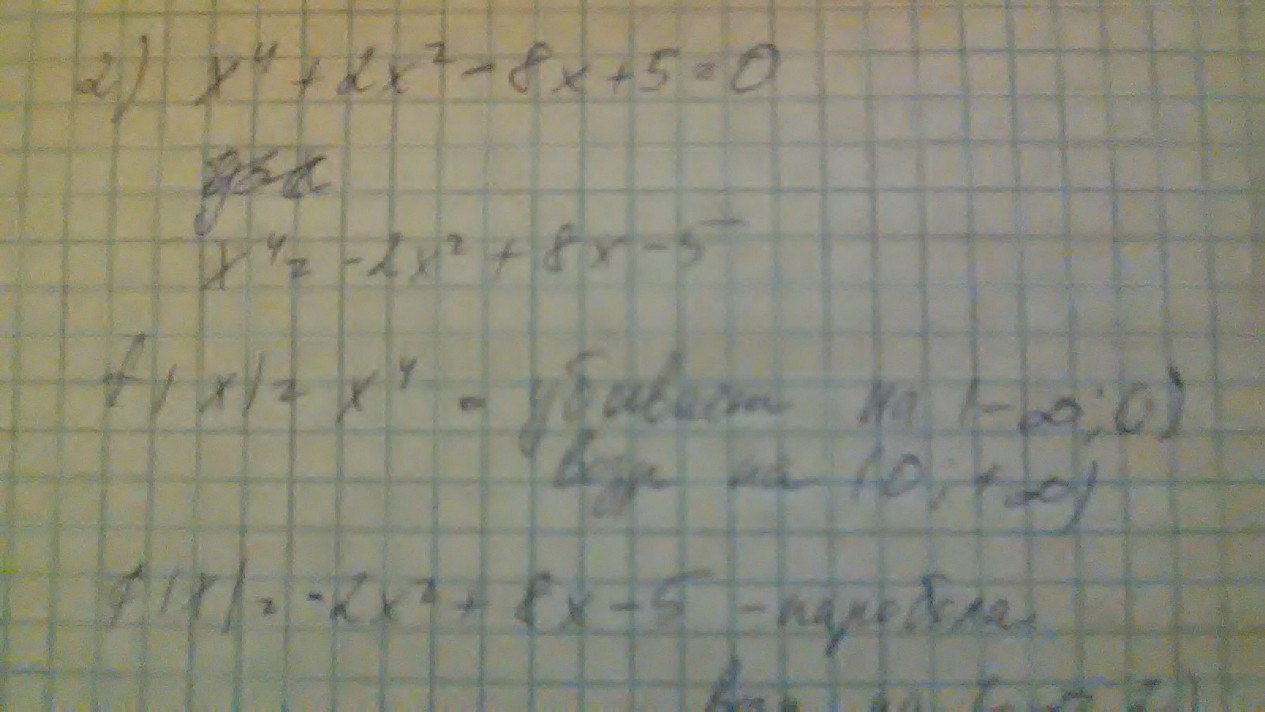 2) x⁴ + 2x² - 8x + 5 = 0
x⁴ = -2x² + 8x - 5
f(x) = x⁴ - убывает на (-∞; 0)
возр на (0; +∞)
f(x) = -2x² + 8x - 5 - парабола
возр на